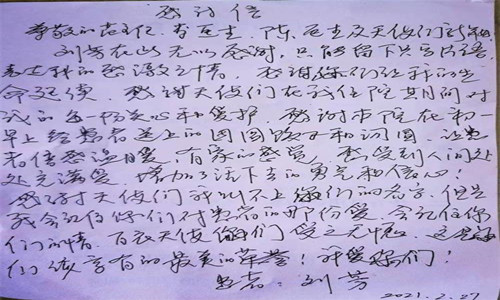 感谢信
尊敬的主任、李医生、陈医生及天使们
刘芳在此无以感谢，只能留下只言片语，
表达我的感激之情。感谢你们给我的生
命延续，感谢天使们在我住院其间对
我的每一份关心和爱护，感谢市院在初一
早上给患者送上的团团饺子和汤圆，让患
者倍感温暖，有家的感觉，感受到人间处
处充满爱，增加了活下去的勇气和信心！
感谢天使们我叫不上你们的名字，但是
我会记住你们对患者的那份爱，会记住你
们的情。百衣天使你们受之无愧，这是你
们该享有的最美的荣誉！我爱你们！
患者：刘芳
2021.2.27